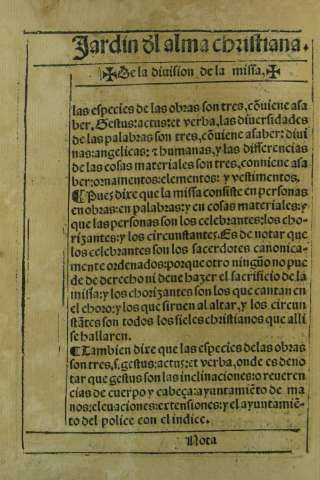 Jardin ďl alma christiana.
✠De la diuision de la missa,✠
las especies de las obras son tres, cõuiene asa
ber. Gestus: actus: et verba, las diuersidades
de las palabras son tres, cõuiene asaber: diui
nas: angelicas: ⁊ humanas, y las differencias
de las cosas materiales son tres, conniene asa
ber: ornamentos: elementos: y vestimentos.
¶Pues dixe que la missa consiste en personas
en obras: en palabras: y en cosas materiales: y
que las personas son los celebrantes: los cho-
rizantes: y los circunstantes. Es de notar que
los celebrantes son los sacerdotes canonica-
mente ordenados: porque otro ningũo no pue
de de derecho ni deue hazer el sacrificio de la
missa: y los chorizantes son los que cantan en
el choro: y los que siruen al altar, y los circun
stãtes son todos los fieles christianos que alli
se hallaren.
¶Tambien dixe que las especies de las obras
son tres, s. gestus: actus: et verba, onde es deno
tar que gestus son las inclinaciones: o reueren
cias de cuerpo y cabeça: ayuntamiẽto de ma
nos: eleuaciones: extensiones: y el ayuntamiẽ
to del police con el indice.
Nota